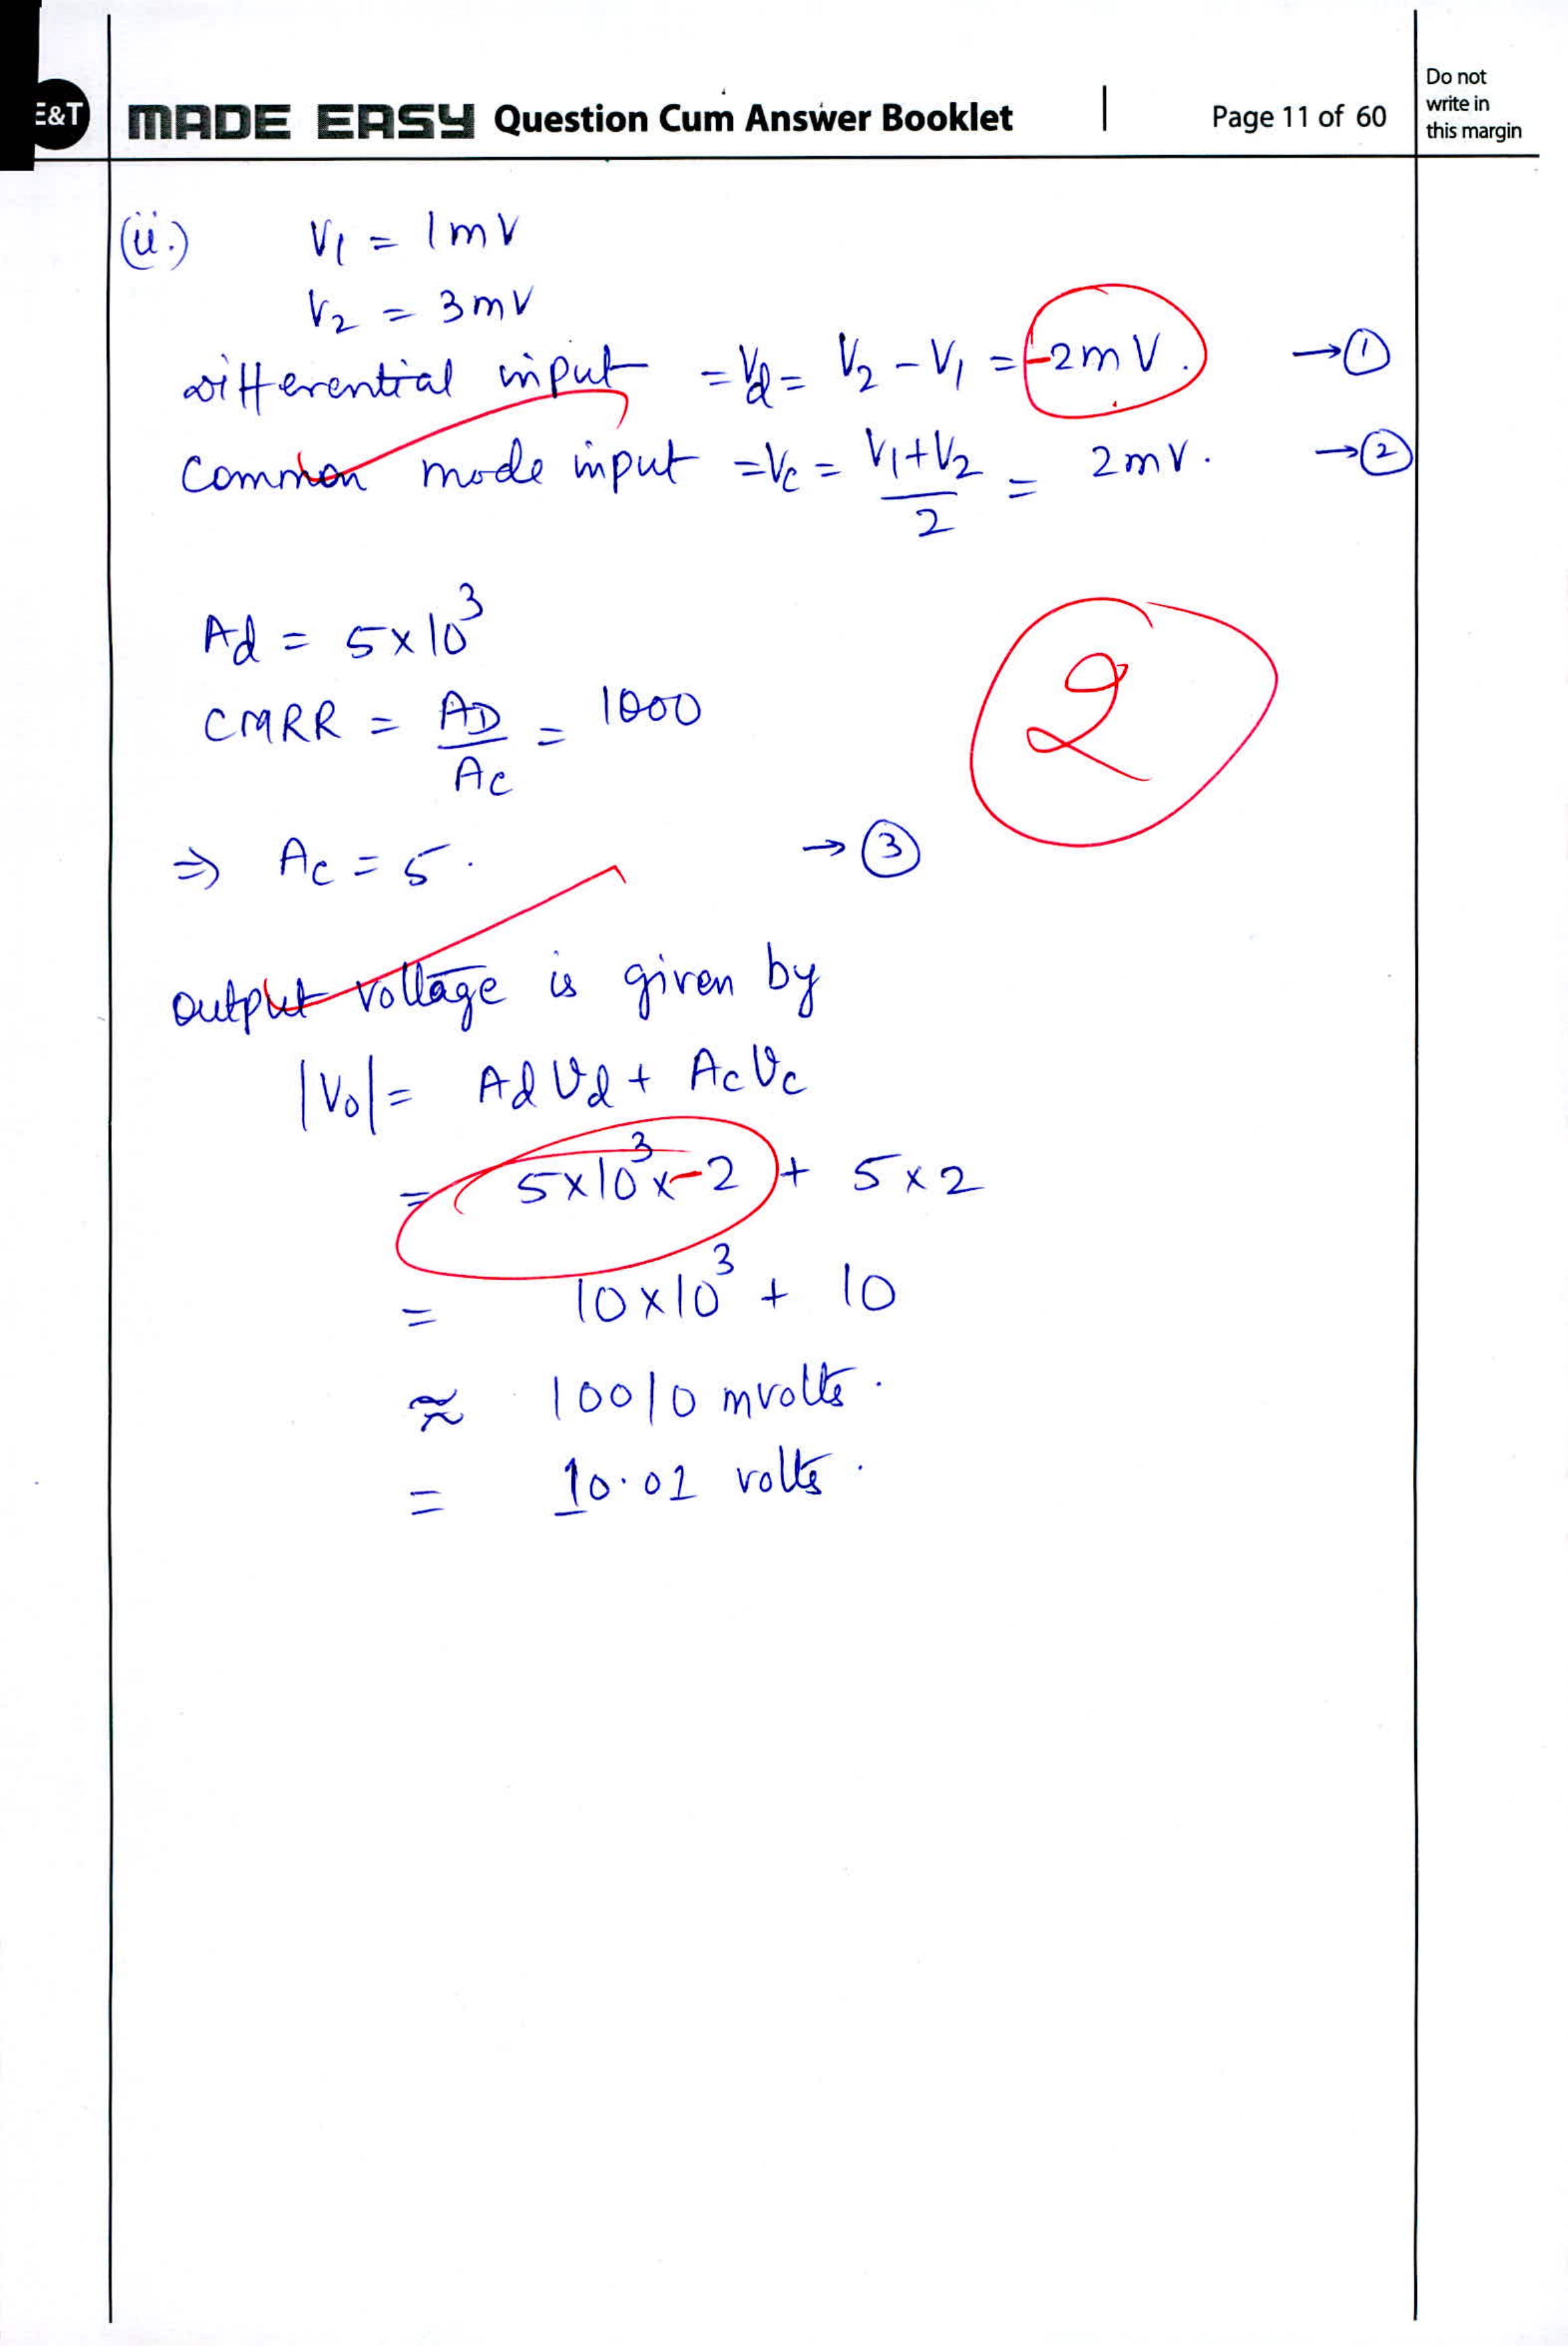 E&T
MADE EASY Question Cum Answer Booklet
Page 11 of 60
Do not
write in
this margin
(ii.) V1 = 1mV
V2 = 3mV
Differential input = Vd = V2 - V1 = -2mV. → ①
Common mode input = Vc = (V1+V2)/2 = 2mV. → ②
Ad = 5×10³
CMRR = AD/AC = 1000
2
⇒ Ac = 5. → ③
output voltage is given by
|Vo| = Ad Vd + Ac Vc
= 5×10³×-2 + 5×2
= 10×10³ + 10
≈ 10010 mvolts.
= 10.01 volts.